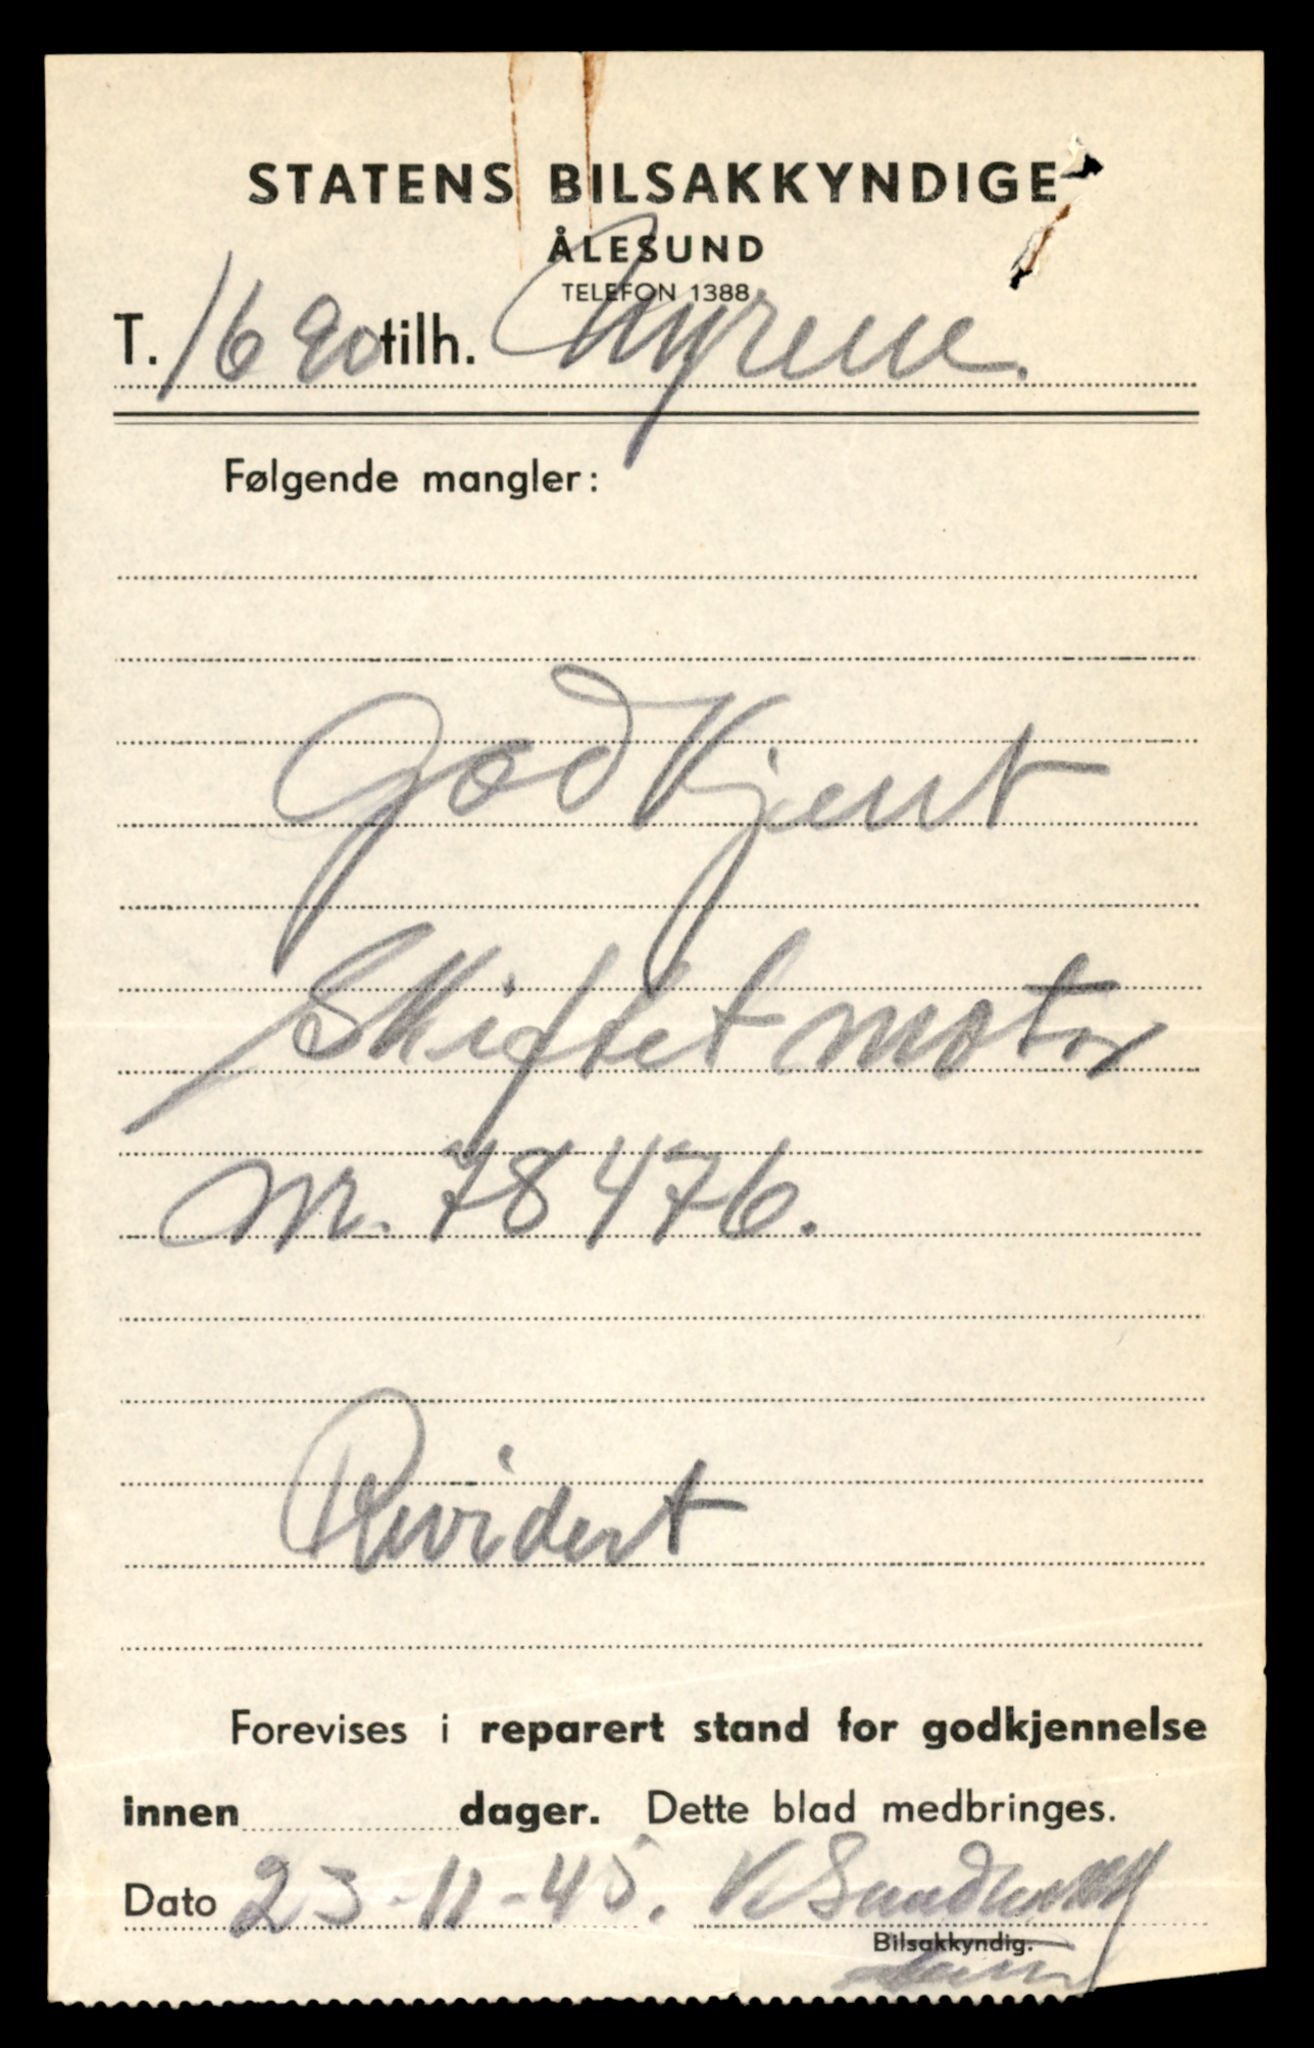 STATENS BILSAKKYNDIGE
ÅLESUND
TELEFON 1388
T. 1690 tilh. Myrene.
Følgende mangler:
Godkjent
Skiftet motor
nr. 78476.
Revidert
Forevises i reparert stand for godkjennelse
innen dager. Dette blad medbringes.
Dato 23-11-45. K
Bilsakkyndig.